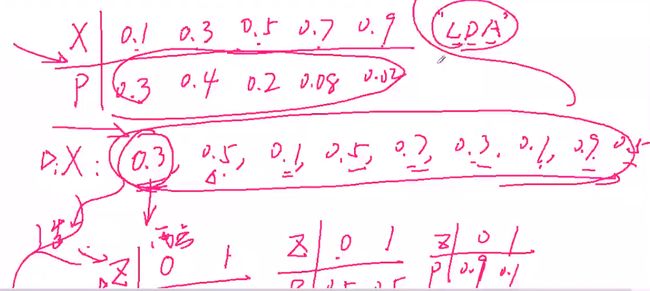 X 0.1 0.3 0.5 0.7 0.9 "LDA"
P 0.3 0.4 0.2 0.08 0.02
D:X: 0.3, 0.5, 0.1, 0.5, 0.7, 0.3, 0.1, 0.9
Z 0 1 Z 0 1 Z 0 1
P 0.9 0.1